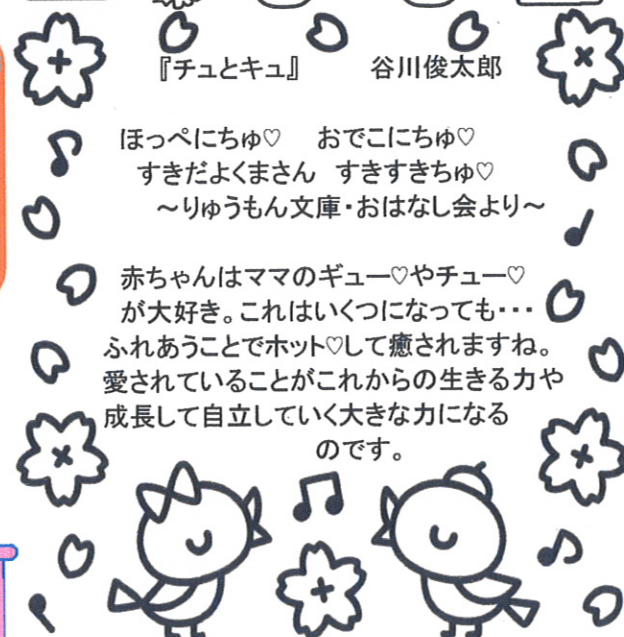 『チュとキュ』 谷川俊太郎
ほっぺにちゅ♡ おでこにちゅ♡
すきだよくまさん すきすきちゅ♡
～りゅうもん文庫・おはなし会より～
赤ちゃんはママのギュー♡やチュー♡
が大好き。これはいくつになっても・・・
ふれあうことでホット♡して癒されますね。
愛されていることがこれからの生きる力や
成長して自立していく大きな力になる
のです。